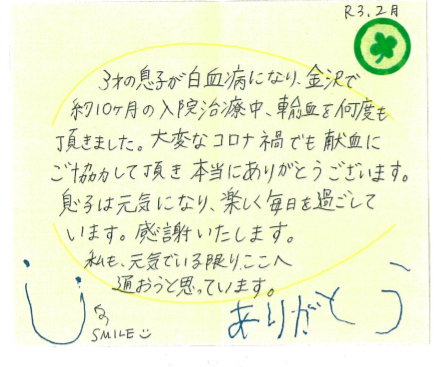 R3.2月
3才の息子が白血病になり、金沢で
約10ヶ月の入院治療中、輸血を何度も
頂きました。大変なコロナ禍でも献血に
ご協力して頂き本当にありがとうございます。
息子は元気になり、楽しく毎日を過ごして
います。感謝いたします。
私も、元気でいる限り、ここへ
通おうと思っています。
SMILE
ありがとう